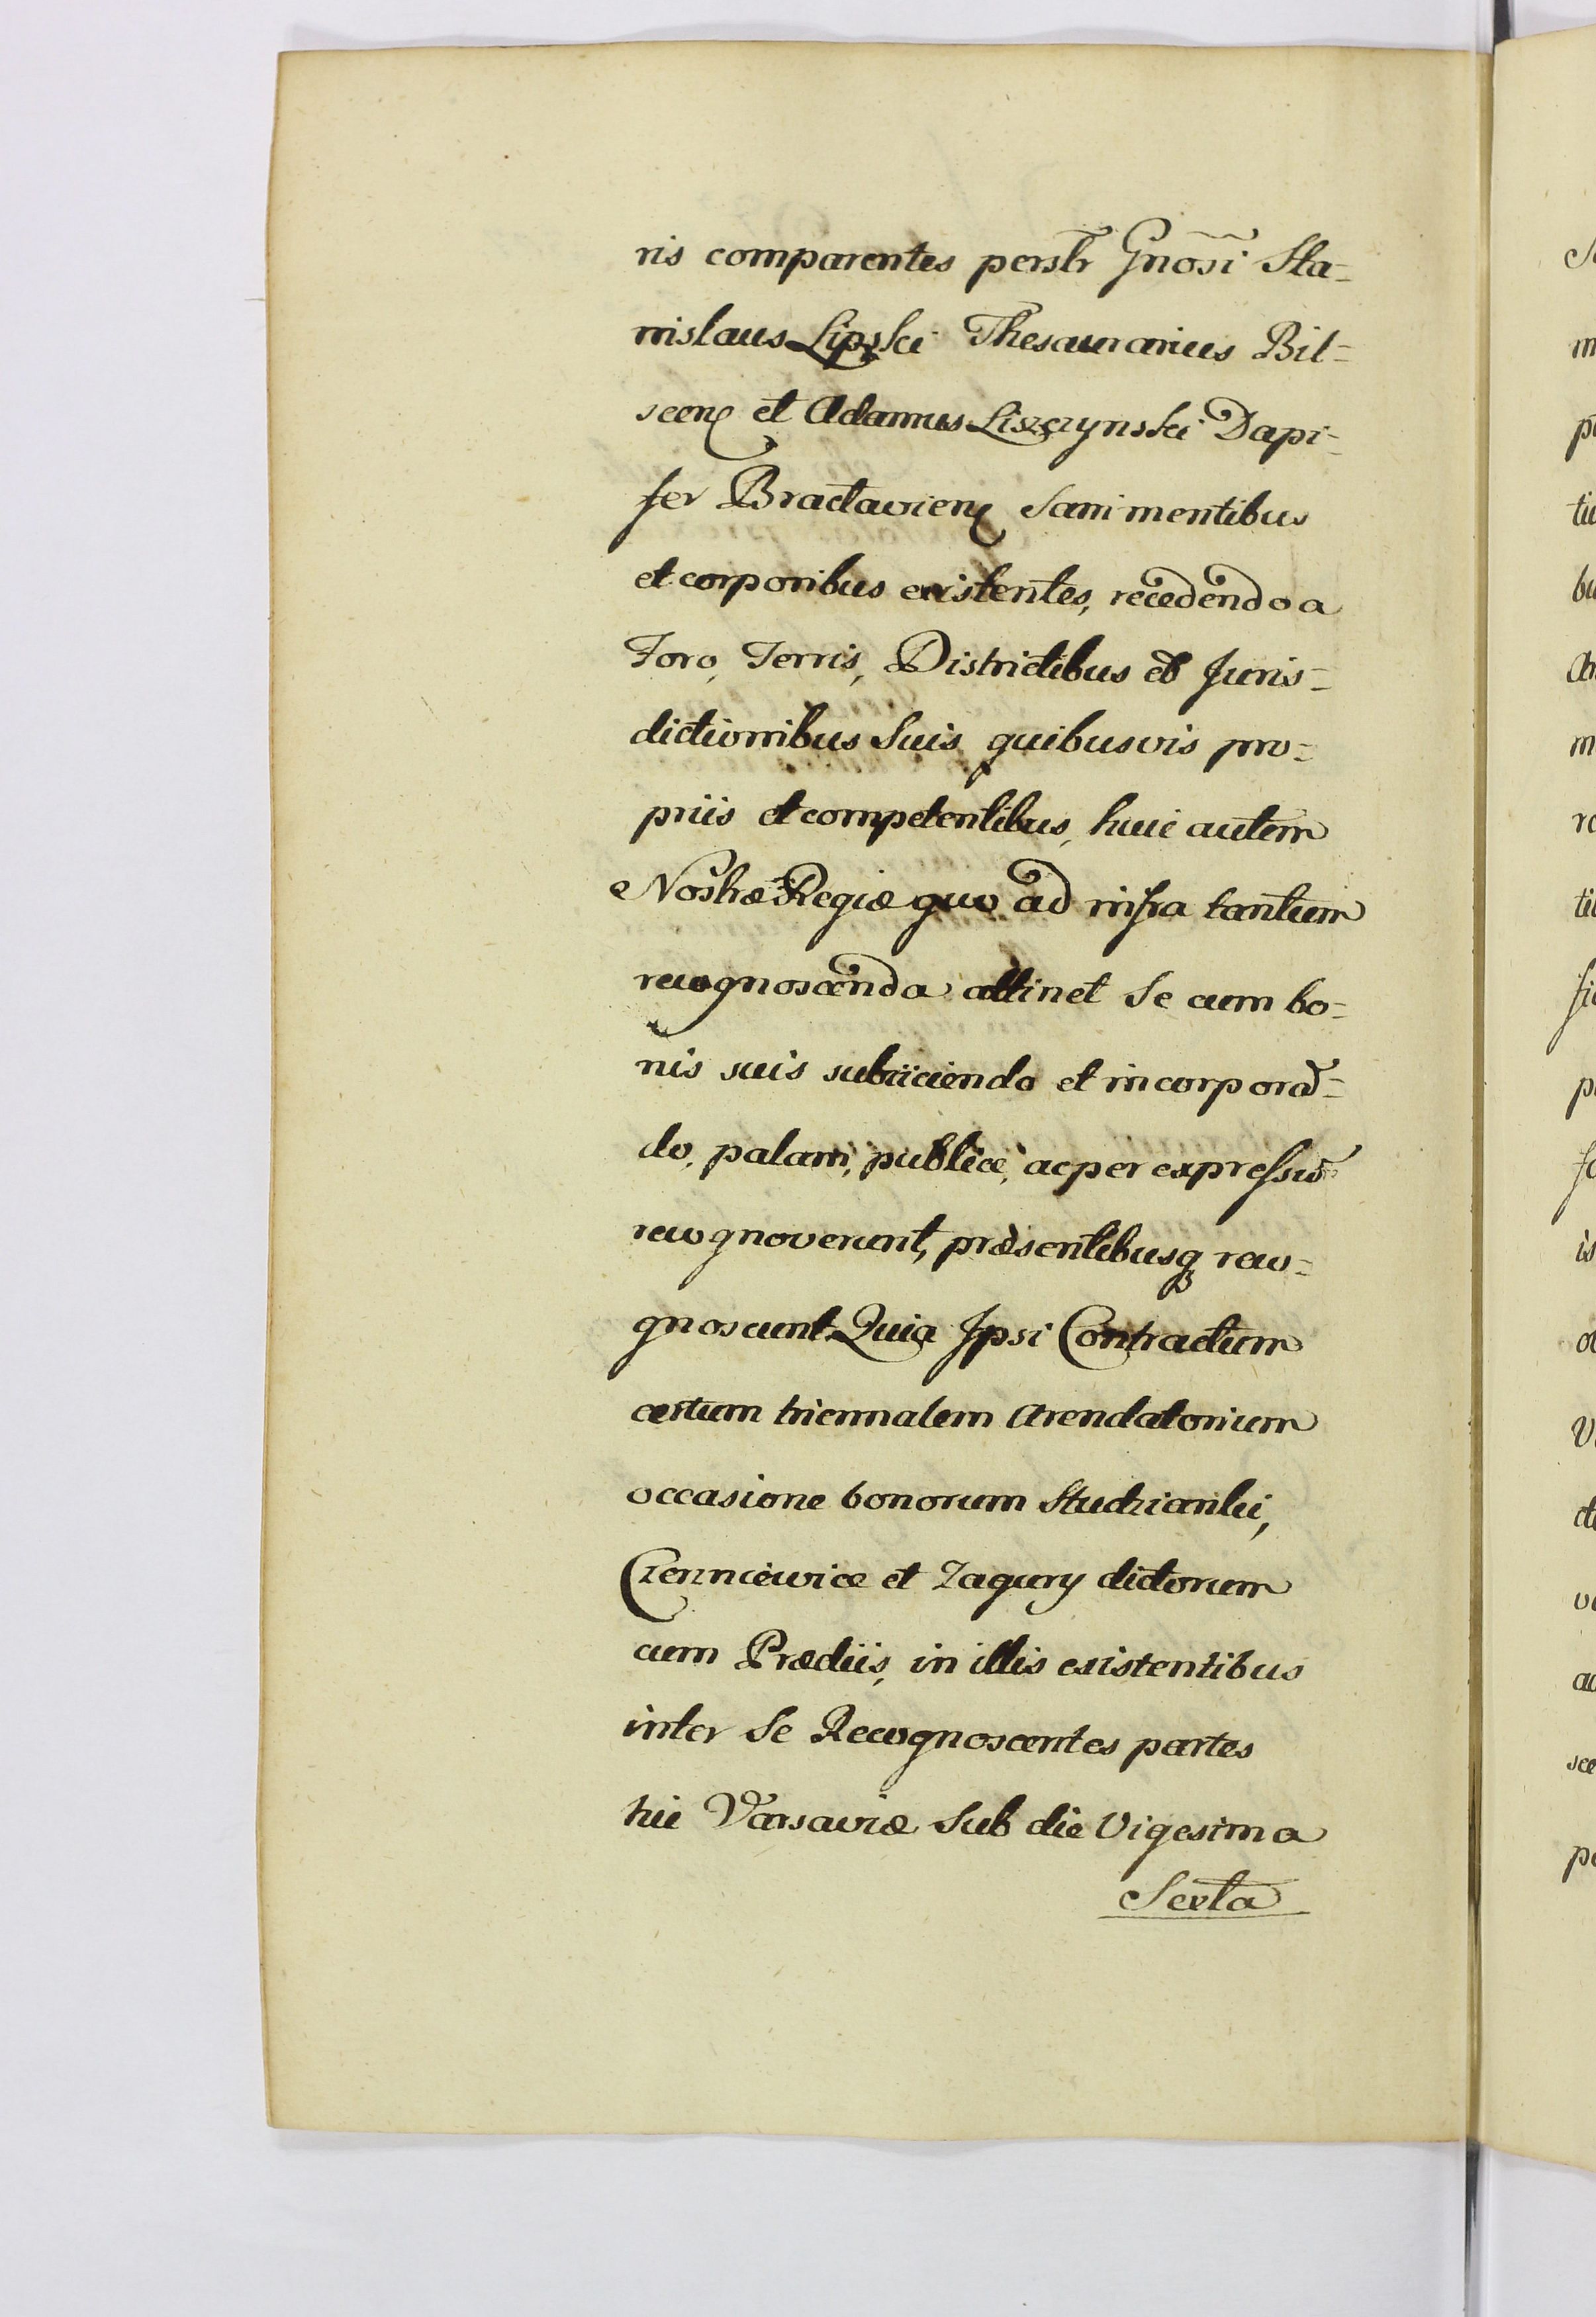 ris comparentes personlr Gnosi Sta=
nislaus Lipski Thesaurarius Bil=
scen et Adamus Liszczynski Dapi=
fer Braclavien Sani mentibus
et corporibus existentes, recedendo a
Foro, Terris, Districtibus et Juris=
dictionibus Suis quibusvis pro=
priis et competentibus, huic autem
Nostræ Regiæ quo ad infra tantum
recognoscenda attinet Se cum bo=
nis suis subiiciendo et incorporã=
do, palam, publice, ac per expressũ
recognoverunt, præsentibusq reco=
gnoscunt Quia Ipsi Contractum
certum triennalem Arendatorium
occasione bonorum Studzianki,
Czerniewice et Zagury dictorum
cum Prædiis, in illis existentibus
inter Se Recognoscentes partes
hic Varsaviæ Sub die Vigesima
Sexta